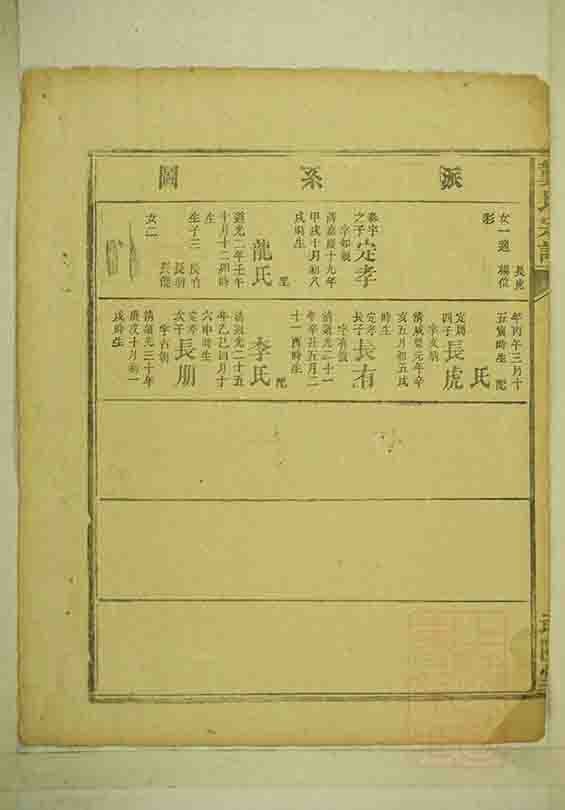 派系圖
長虎
女一適楊位
彩
泰宇
之子
定孝
字如
清嘉慶十九年
甲戌十月初八
戌時生
配
龍氏
道光二年壬午
十月十二卯時
生
生子三
長有
長朋
女二
年丙午三月十
五寅時生
配
氏
定
四子
長虎
字文
清咸豐元年辛
亥五月初五戌
時生
定孝
長子
長有
字有
清道光二十一
年辛丑五月二
十一酉時生
配
李氏
清道光二十五
年乙巳四月十
六申時生
定孝
次子
長朋
字有朝
清道光三十年
庚戌十月初一
戌時生